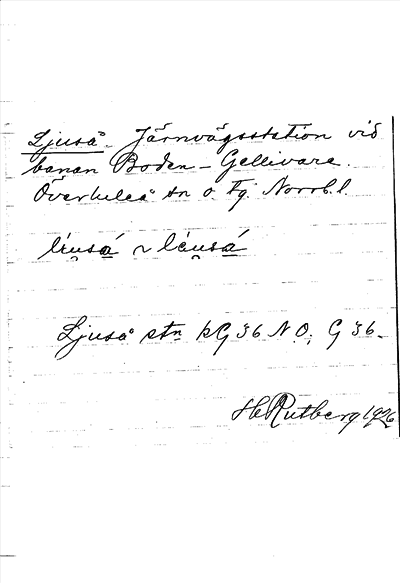 Ljuså Järnvägsstation vid
banan Boden-Gellivare.
Överluleå sn o. tg. Norrb. l.
Ljuså stn kG 36 N O; G 36.
H Rutberg 1926